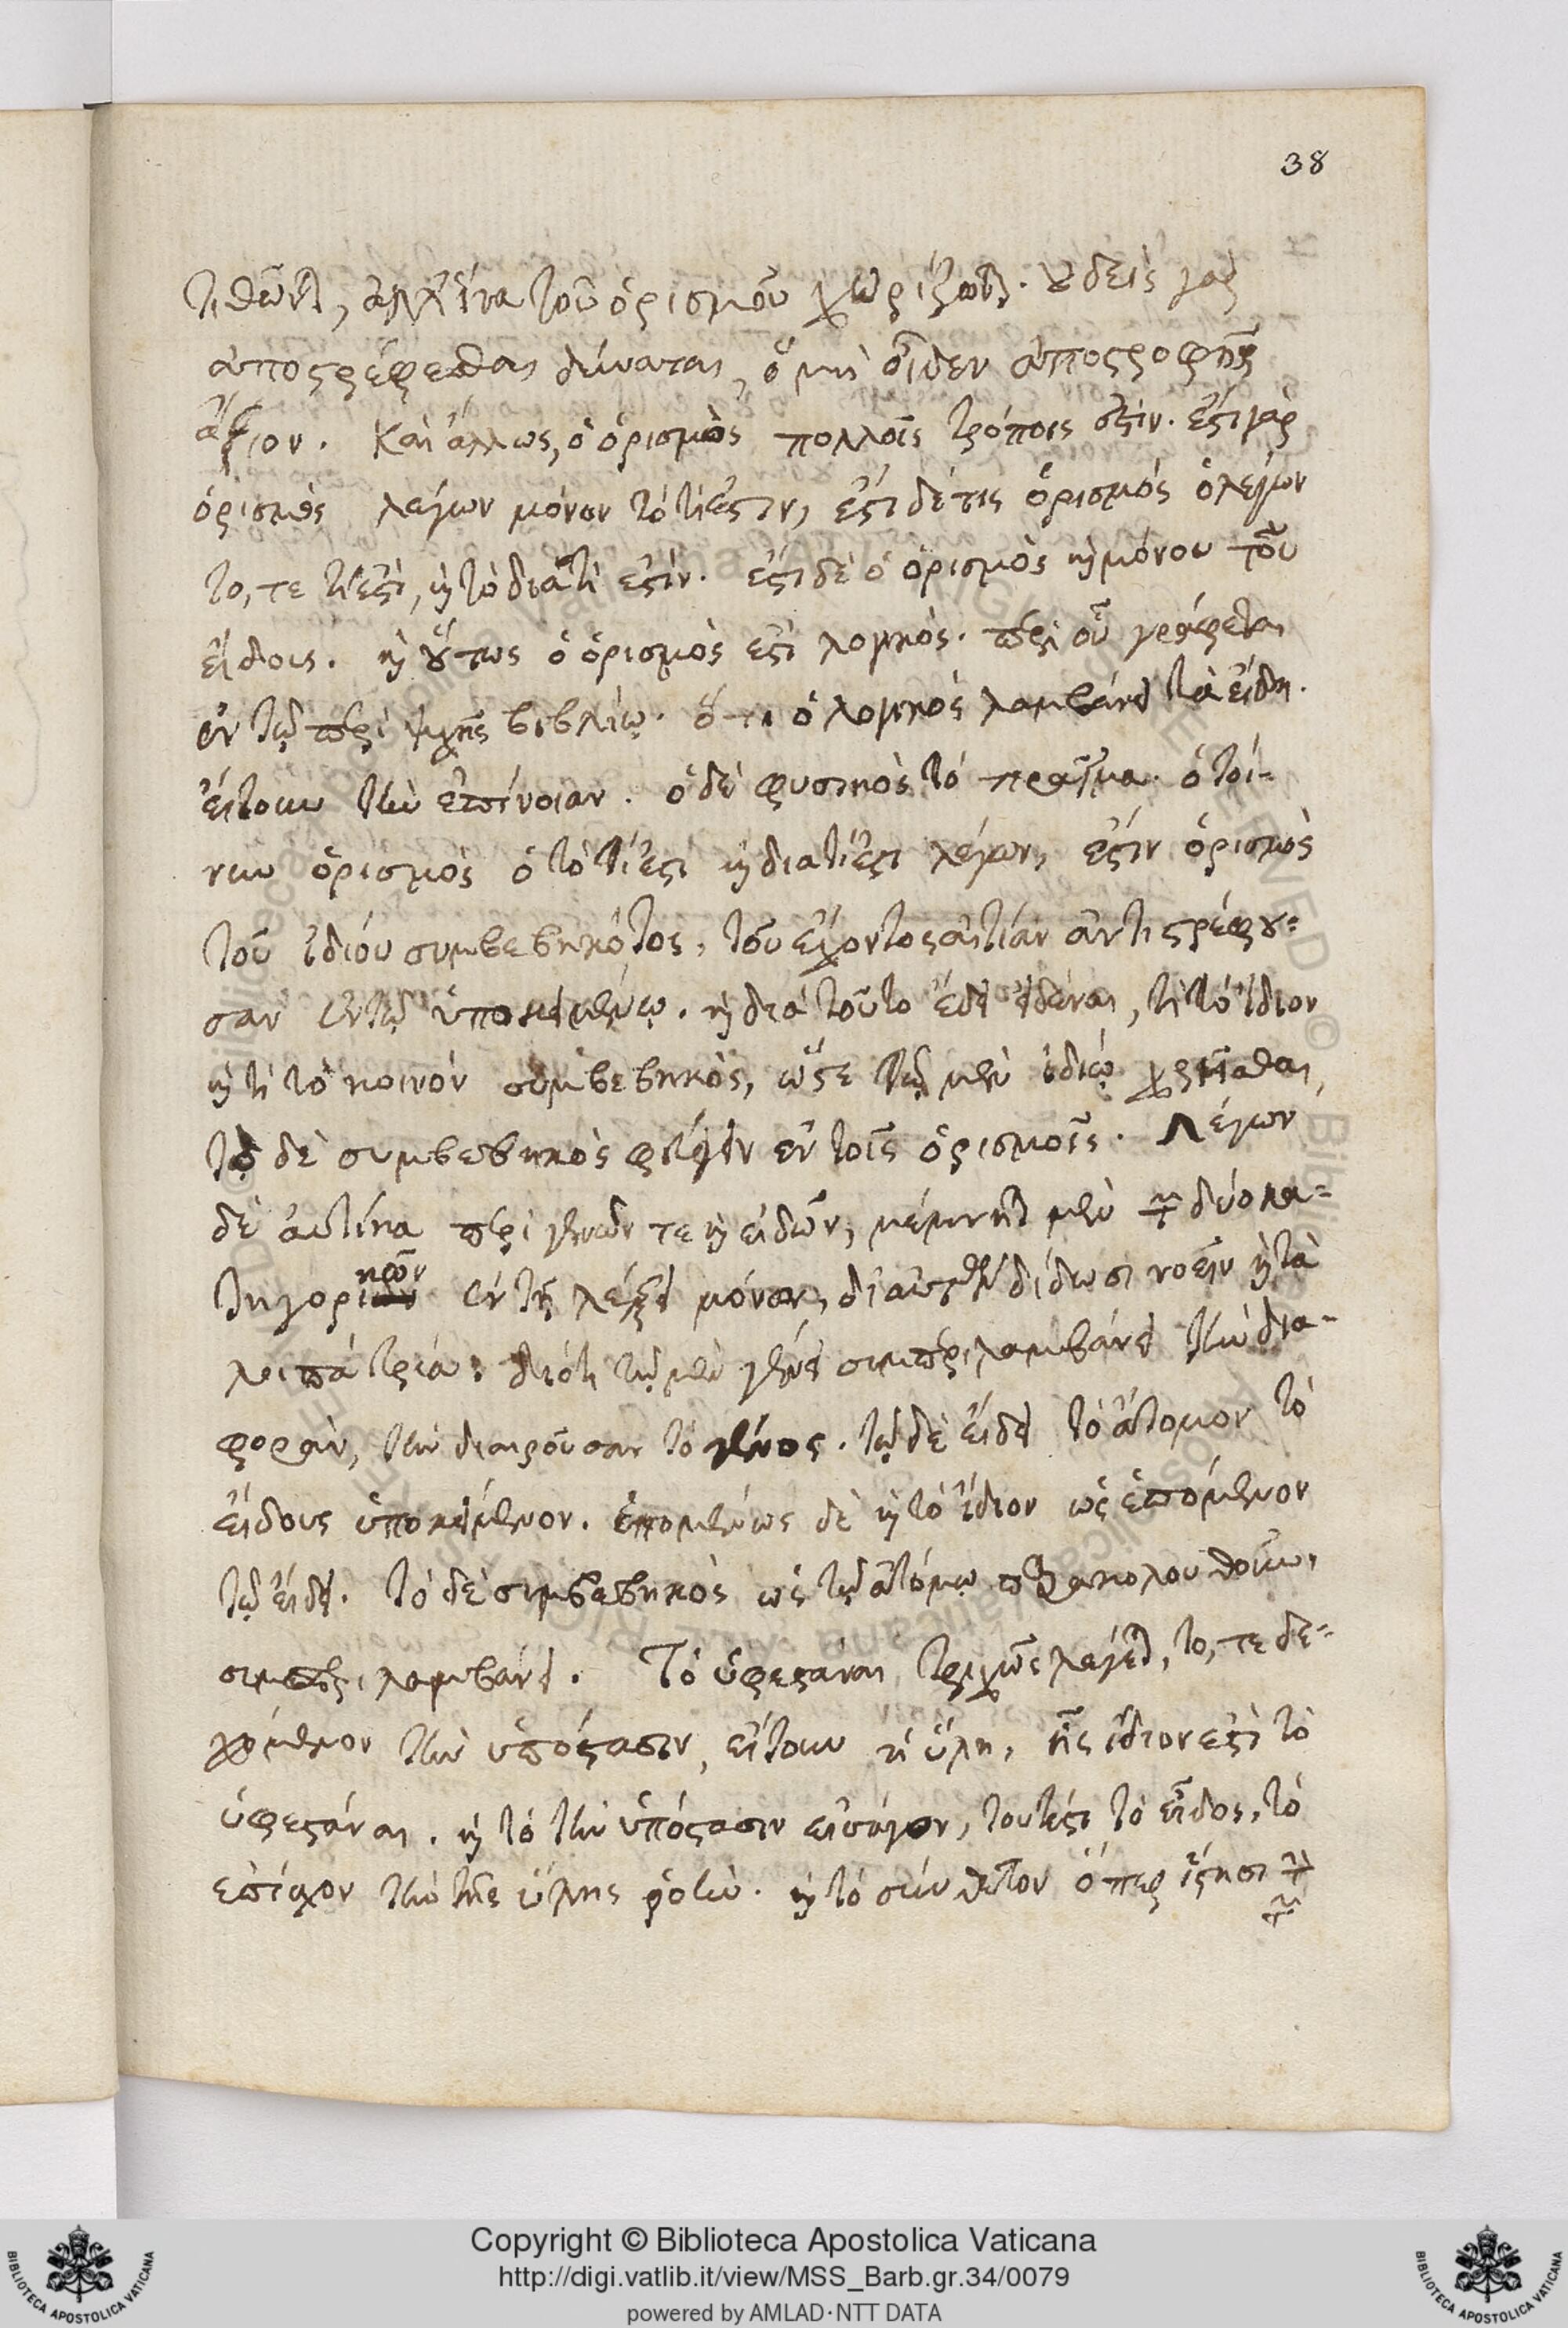 38
τιθῶνται, ἀλλ' ἵνα τοῦ ὁρισμοῦ χωρίζωνται. οὐδεὶς γὰρ
ἀποστρέφεσθαι δύναται, ὃ μὴ οἶδεν ἀποστροφῆς
ἄξιον. Καὶ ἄλλως, ὁ ὁρισμὸς πολλοῖς τρόποις ἐστίν. ἔστι γὰρ
ὁρισμὸς λέγων μόνον τὸ τί ἐστιν, ἔστι δέ τις ὁρισμός ὁ λέγων
τό, τε τί ἐστὶ, καὶ τὸ διατί ἐστίν. ἔστι δὲ ὁ ὁρισμὸς καὶ μόνου τοῦ
εἴδους. καὶ οὕτως ὁ ὁρισμὸς ἐστὶ λογικός. περὶ οὗ γράφεται
ἐν τῷ περὶ ψυχῆς βιβλίῳ. ὅτι ὁ λογικὸς λαμβάνει τὰ εἴδη.
εἴτουν τὴν ἐπίνοιαν. ὁ δὲ φυσικὸς τὸ πρᾶγμα. ὁ τοί-
νυν ὁρισμὸς ὁ τὸ τί ἐστι καὶ διατί ἐστι λέγων, ἐστὶν ὁρισμὸς
τοῦ ἰδίου συμβεβηκότος, τοῦ ἔχοντος αἰτίαν ἀντιστρέφου-
σαν ἐν τῷ ὑποκειμένῳ. καὶ διὰ τοῦτο ἔδει εἰδέναι, τί τὸ ἴδιον
καὶ τί τὸ κοινὸν συμβεβηκὸς, ὥστε τῷ μὲν ἰδίῳ χρῆσθαι,
τὸ δὲ συμβεβηκὸς φεύγειν ἐν τοῖς ὁρισμοῖς. Λέγων
δὲ αὐτίκα περὶ γενῶν τε καὶ εἰδῶν, μέμνηται μὲν τῶν δύο κα-
τηγορικῶν ἐν τῇ λέξει μόνον, δι' αὐτῶν δίδωσι νοεῖν καὶ τὰ
λοιπὰ τρία: διότι τῷ μὲν γένει συμπεριλαμβάνει τὴν δια-
φορὰν, τὴν διαιροῦσαν τὸ γένος. τῷ δὲ εἴδει τὸ ἄτομον τὸ
εἴδους ὑποκείμενον. ἑπομένως δὲ καὶ τὸ ἴδιον ὡς ἑπόμενον
τῷ εἴδει. τὸ δὲ συμβεβηκὸς ὡς τῷ ἀτόμῳ παρακολουθοῦν,
συμπεριλαμβάνει. Τὸ ὑφεστάναι τριχῶς λέγεται, τό, τε δε-
χόμενον τὴν ὑπόστασιν, εἴτουν ἡ ὕλη, ἧς ἴδιον ἐστὶ τὸ
ὑφεστάναι. καὶ τὸ τὴν ὑπόστασιν εἰσάγον, τουτέστι τὸ εἶδος, τὸ
ἐπίσχον τὴν τῆς ὕλης ῥοήν. καὶ τὸ σύνθετον ὅπερ ἵστησι τὴν
τῶν
Copyright © Biblioteca Apostolica Vaticana
http://digi.vatlib.it/view/MSS_Barb.gr.34/0079
powered by AMLAD·NTT DATA